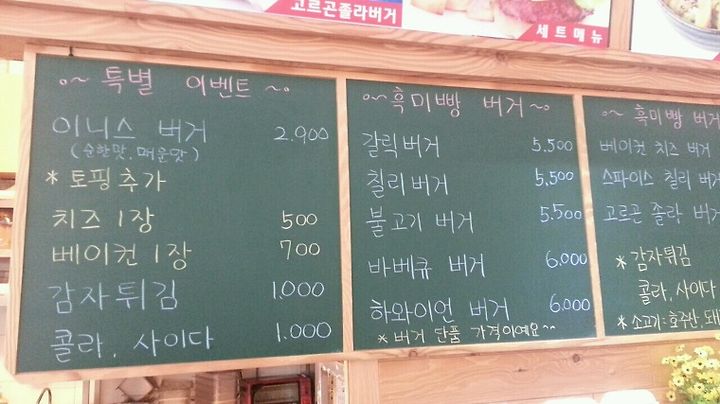 고르곤졸라버거
세트메뉴
특별 이벤트
이니스 버거 2.900
(순한맛, 매운맛)
* 토핑추가
치즈 1장 500
베이컨 1장 700
감자튀김 1.000
콜라, 사이다 1.000
흑미빵 버거
갈릭버거 5.500
칠리버거 5,500
불고기 버거 5.500
바베큐 버거 6.000
하와이언 버거 6.000
* 버거 단품 가격이예요~~
흑미빵 버거
베이컨 치즈 버거
스파이스 칠리 버거
고르곤 졸라 버거
* 감자튀김
콜라, 사이다
* 소고기:호주산, 돼